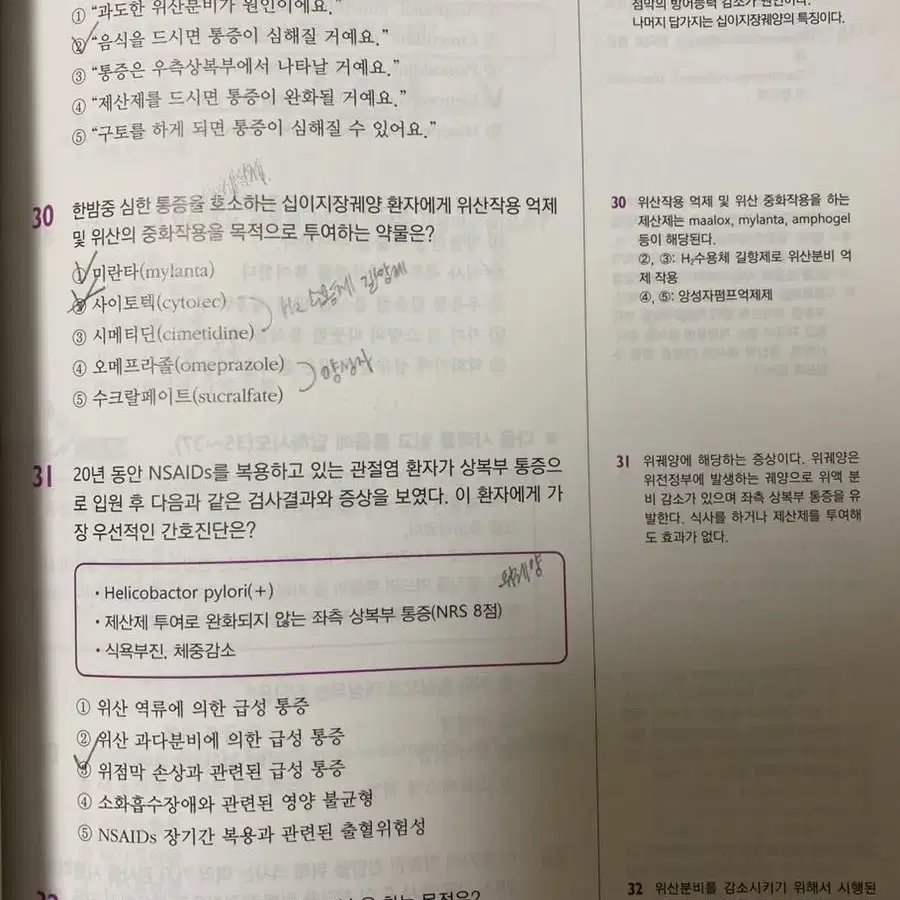 ① “과도한 위산분비가 원인이에요.”
② “음식을 드시면 통증이 심해질 거예요.”
③ “통증은 우측상복부에서 나타날 거예요.”
④ “제산제를 드시면 통증이 완화될 거예요.”
⑤ “구토를 하게 되면 통증이 심해질 수 있어요.”
점막의 방어능력 감소가 원인이다.
나머지 답가지는 십이지장궤양의 특징이다.
30 한밤중 심한 통증을 호소하는 십이지장궤양 환자에게 위산작용 억제
및 위산의 중화작용을 목적으로 투여하는 약물은?
① 미란타(mylanta)
② 사이토텍(cytotec)
③ 시메티딘(cimetidine)
H₂ 수용체 길항제
④ 오메프라졸(omeprazole)
⑤ 수크랄페이트(sucralfate)
양성자
30 위산작용 억제 및 위산 중화작용을 하는
제산제는 maalox, mylanta, amphogel
등이 해당된다.
②, ③: H₂수용체 길항제로 위산분비 억
제 작용
④, ⑤: 양성자펌프억제제
31 20년 동안 NSAIDs를 복용하고 있는 관절염 환자가 상복부 통증으
로 입원 후 다음과 같은 검사결과와 증상을 보였다. 이 환자에게 가
장 우선적인 간호진단은?
위궤양
• Helicobacter pylori(+)
• 제산제 투여로 완화되지 않는 좌측 상복부 통증(NRS 8점)
• 식욕부진, 체중감소
① 위산 역류에 의한 급성 통증
② 위산 과다분비에 의한 급성 통증
③ 위점막 손상과 관련된 급성 통증
④ 소화흡수장애와 관련된 영양 불균형
⑤ NSAIDs 장기간 복용과 관련된 출혈위험성
31 위궤양에 해당하는 증상이다. 위궤양은
위전정부에 발생하는 궤양으로 위액 분
비 감소가 있으며 좌측 상복부 통증을 유
발한다. 식사를 하거나 제산제를 투여해
도 효과가 없다.
32 위산분비를 감소시키기 위해서 시행된
하는 목적은?